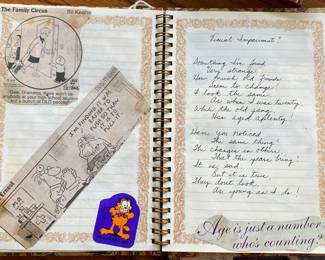 The Family Circus
Bil Keane
"Gee, Grandma, there won't be
anybody at your high school reunion
but a bunch of OLD people!"
I'M FINDING IT
EASIER TO
PUSH 60 THAN
PULL IT
Visual Impairment?
Something I've found
Very strange
How friends old friends
seem to change
I look the same
As when I was twenty
While the old gang
Has aged aplenty!
Have you noticed
The same thing?
The changes in others
That the years bring?
It is sad,
But it is true,
They don't look
As young as I do!
Age is just a number,
who's counting?